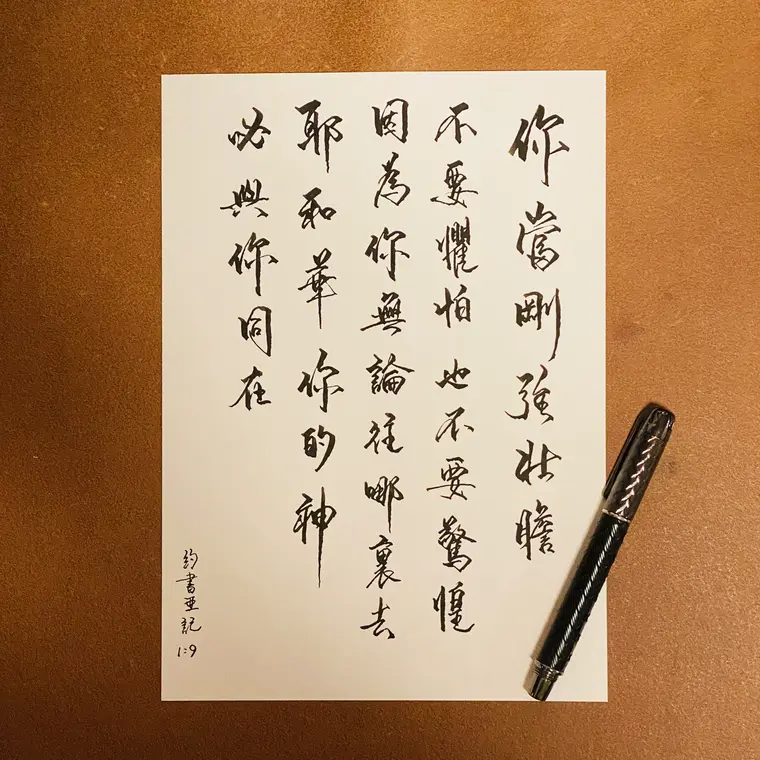 你當剛強壯膽
不要懼怕也不要驚惶
因為你無論往哪裏去
耶和華你的神
必與你同在
約書亞記
1:9